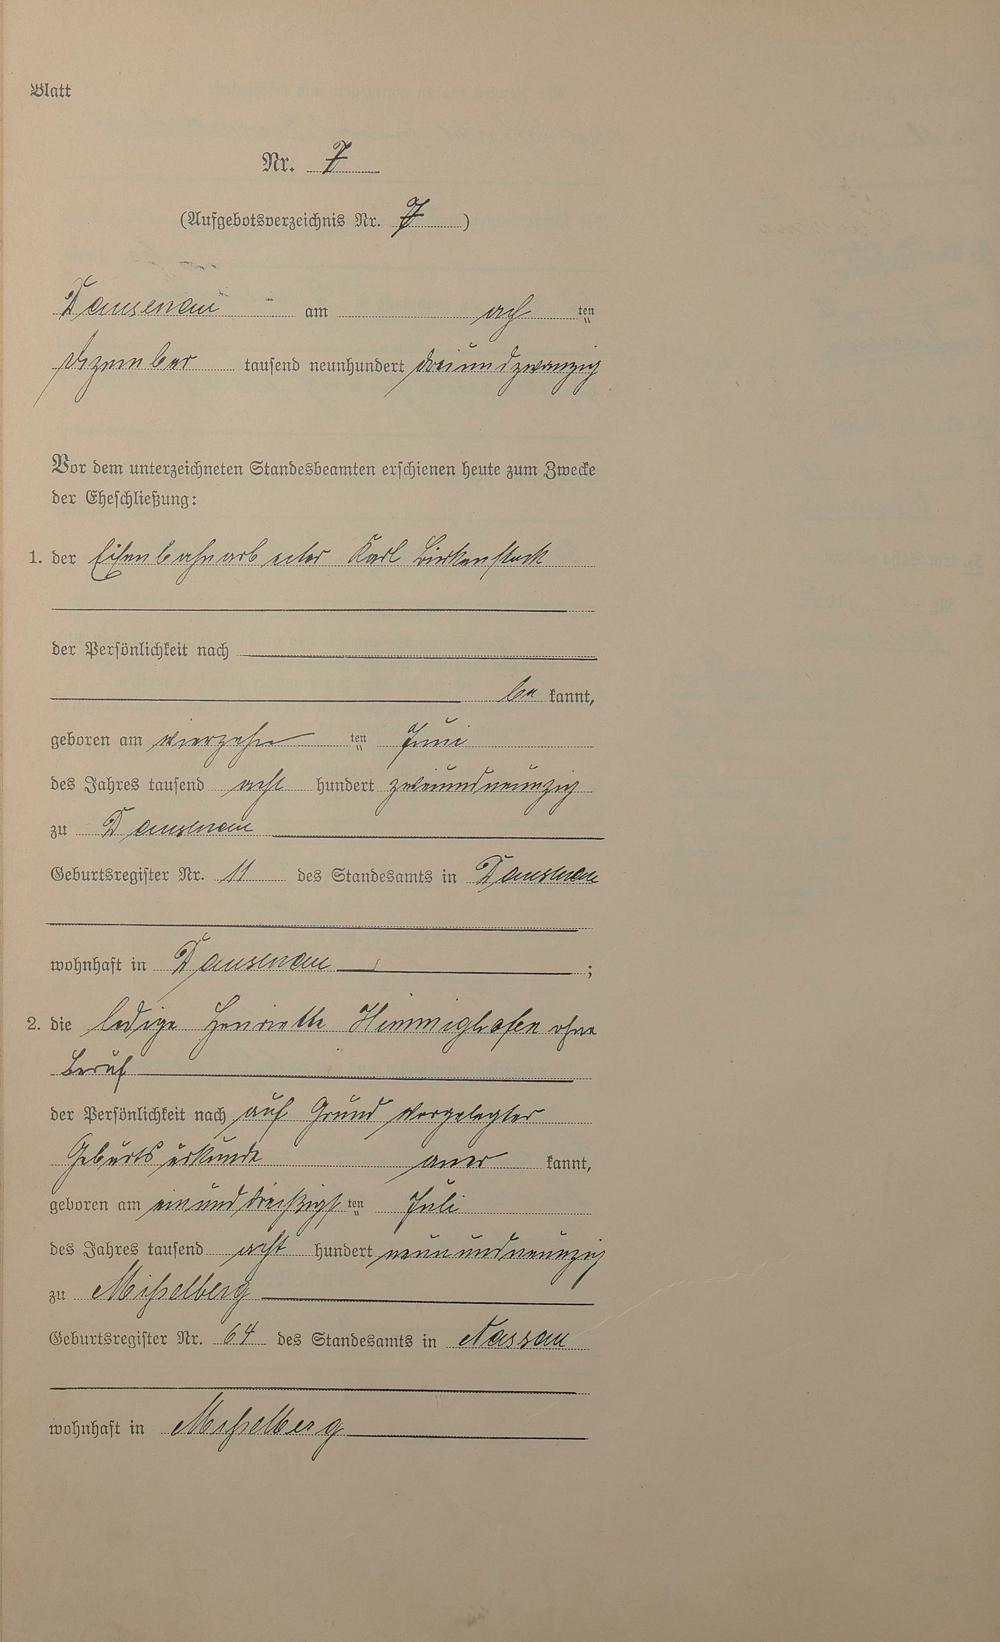 Blatt
Nr. 7
(Aufgebotsverzeichnis Nr. 7)
Dausenau am ach ten
Dezember tausend neunhundert dreiundzwanzig
Vor dem unterzeichneten Standesbeamten erschienen heute zum Zwecke
der Eheschließung:
1. der Eisenbahnarbeiter Karl Birkenstock
der Persönlichkeit nach
be kannt,
geboren am vierzehn ten Juni
des Jahres tausend acht hundert zweiundneunzig
zu Dausenau
Geburtsregister Nr. 11 des Standesamts in Dausenau
wohnhaft in Dausenau ;
2. die ledige Henriette Himmighofen ohne
Beruf
der Persönlichkeit nach auf Grund vorgelegter
Geburtsurkunde aner kannt,
geboren am einunddreißigs ten Juli
des Jahres tausend acht hundert neunundneunzig
zu Misselberg
Geburtsregister Nr. 64 des Standesamts in Nassau
wohnhaft in Misselberg